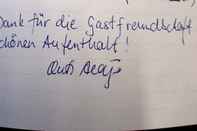 Dank für die Gastfreundschaft
schönen Aufenthalt!